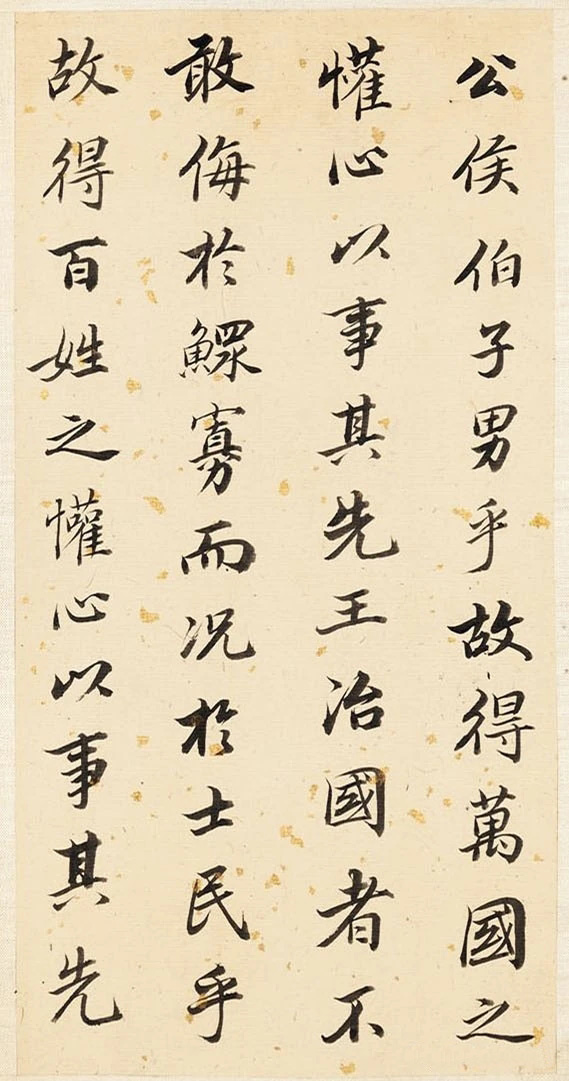 公侯伯子男乎故得萬國之
懽心以事其先王治國者不
敢侮於鰥寡而況於士民乎
故得百姓之懽心以事其先